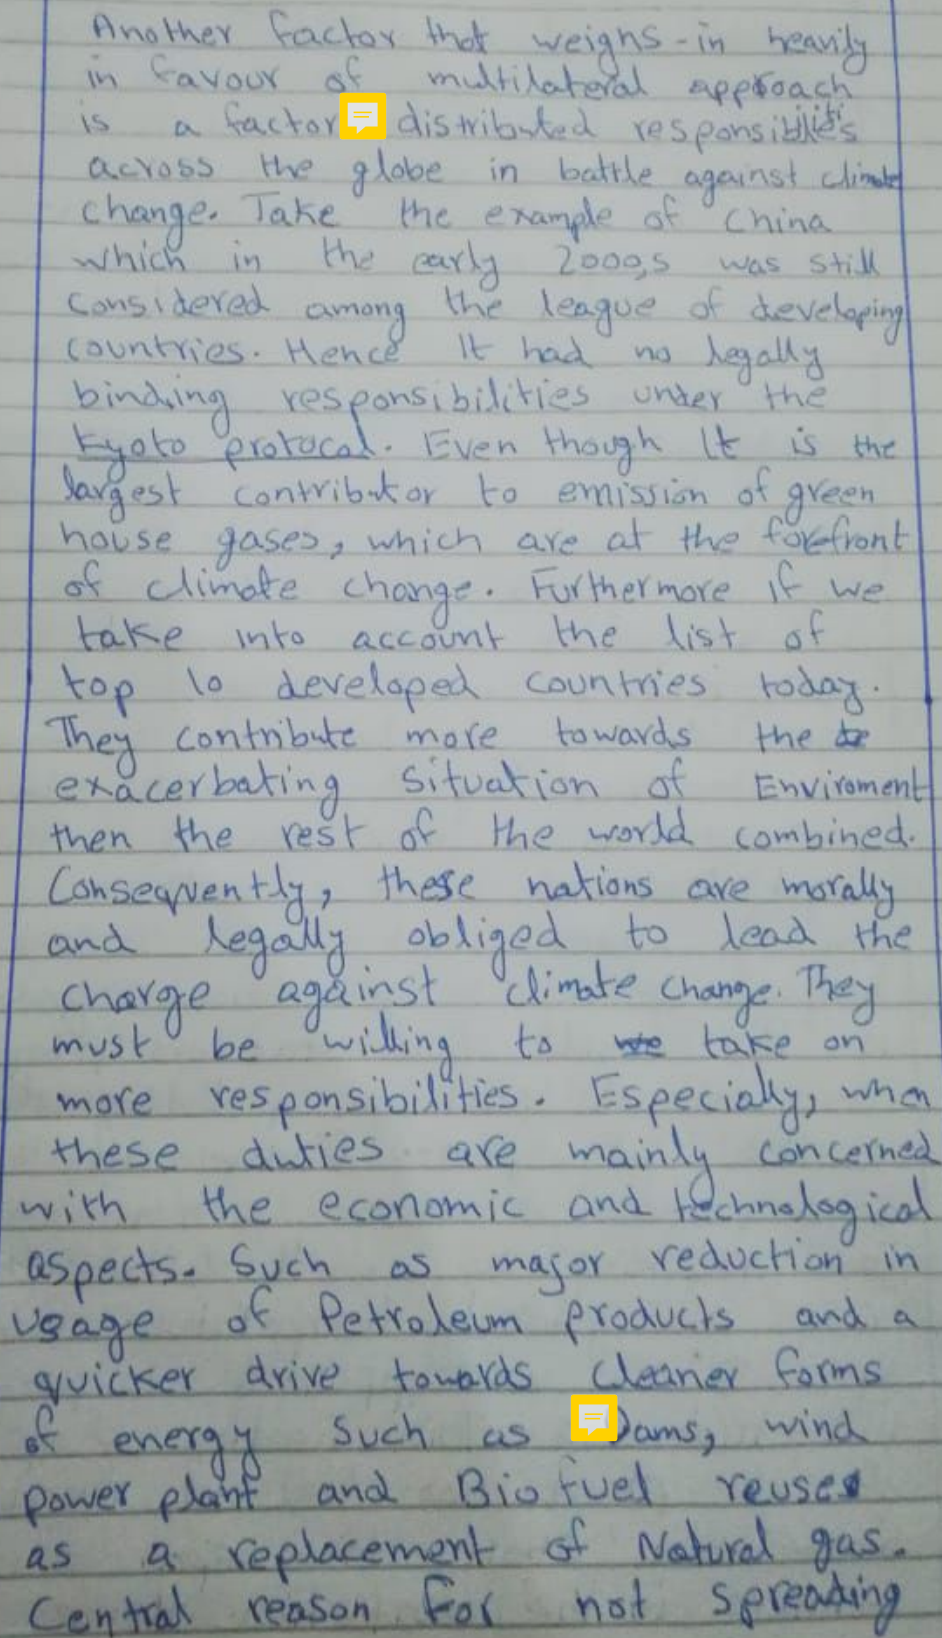 Another factor that weighs-in heavily
in favour of multilateral approach
is a factor distributed responsibilities
across the globe in battle against climate
change. Take the example of China
which in the early 2000,s was still
considered among the league of developing
countries. Hence It had no legally
binding responsibilities under the
Kyoto protocal. Even though It is the
largest contributor to emission of green
house gases, which are at the forefront
of climate change. Furthermore if we
take into account the list of
top 10 developed countries today.
They contribute more towards the
exacerbating situation of Enviroment
then the rest of the world combined.
Consequently, these nations are morally
and legally obliged to lead the
charge against climate change. They
must be willing to take on
more responsibilities. Especially, when
these duties are mainly concerned
with the economic and technological
aspects. Such as major reduction in
usage of Petroleum products and a
quicker drive towards cleaner forms
of energy such as Dams, wind
power plant and Bio fuel reuse
as a replacement of Natural gas.
Central reason for not spreading